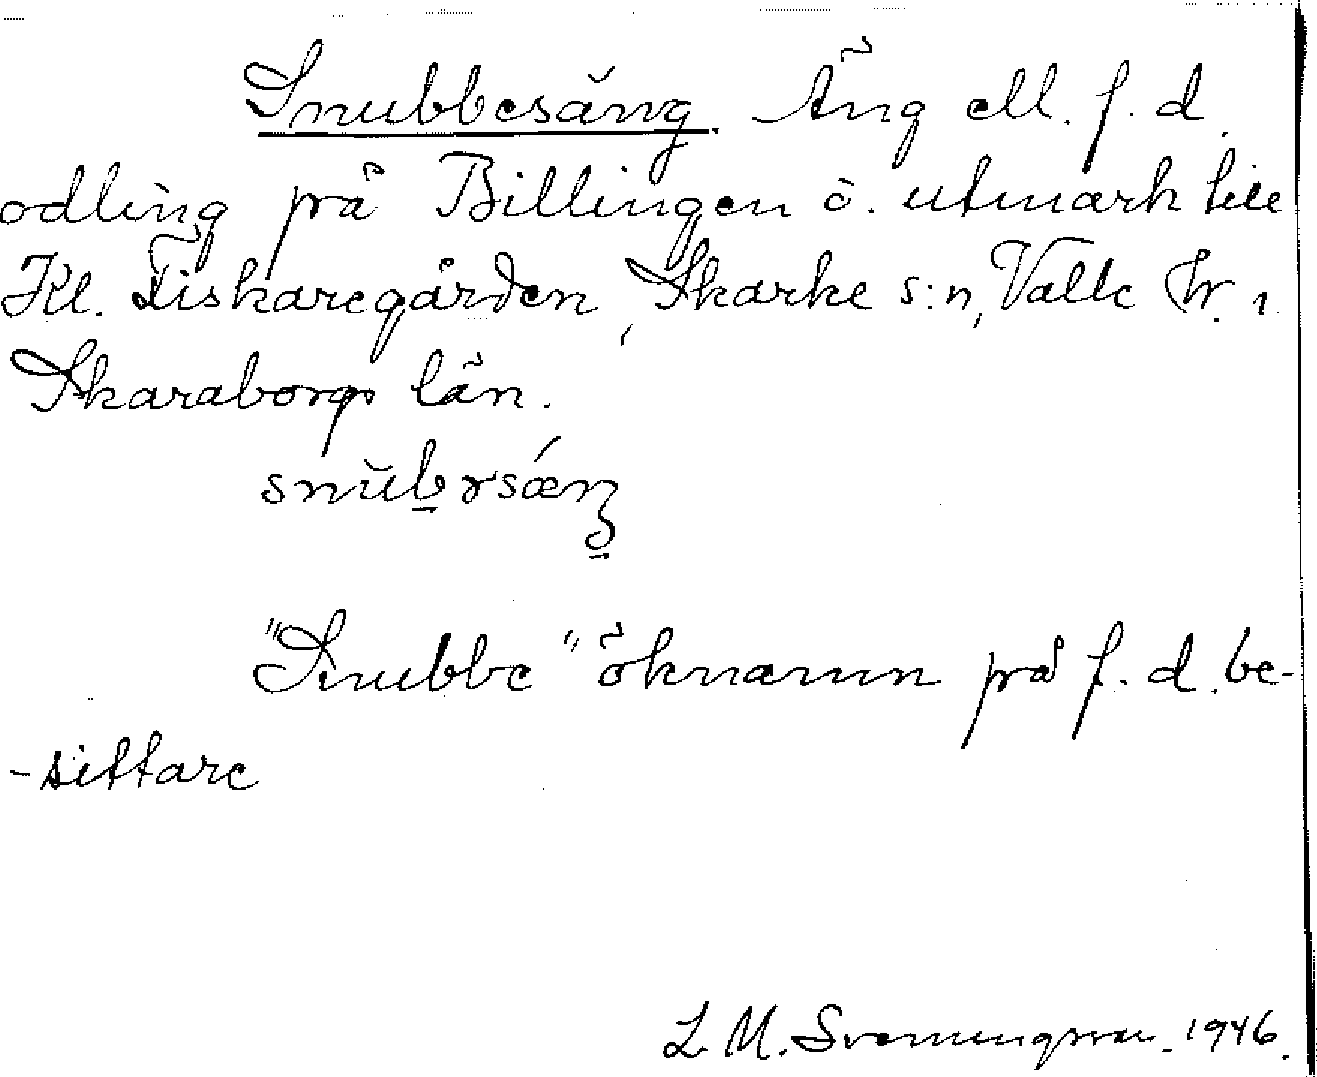 Snubbesäng. Äng ell. f. d.
odling på Billingen ö. utmark till
Kl. Fiskaregården, Skarke s:n, Valle hr. i
Skaraborgs län.
"Snubbe" öknamn på f. d. be-
-sittare
L. M. Svenungsson. 1946.